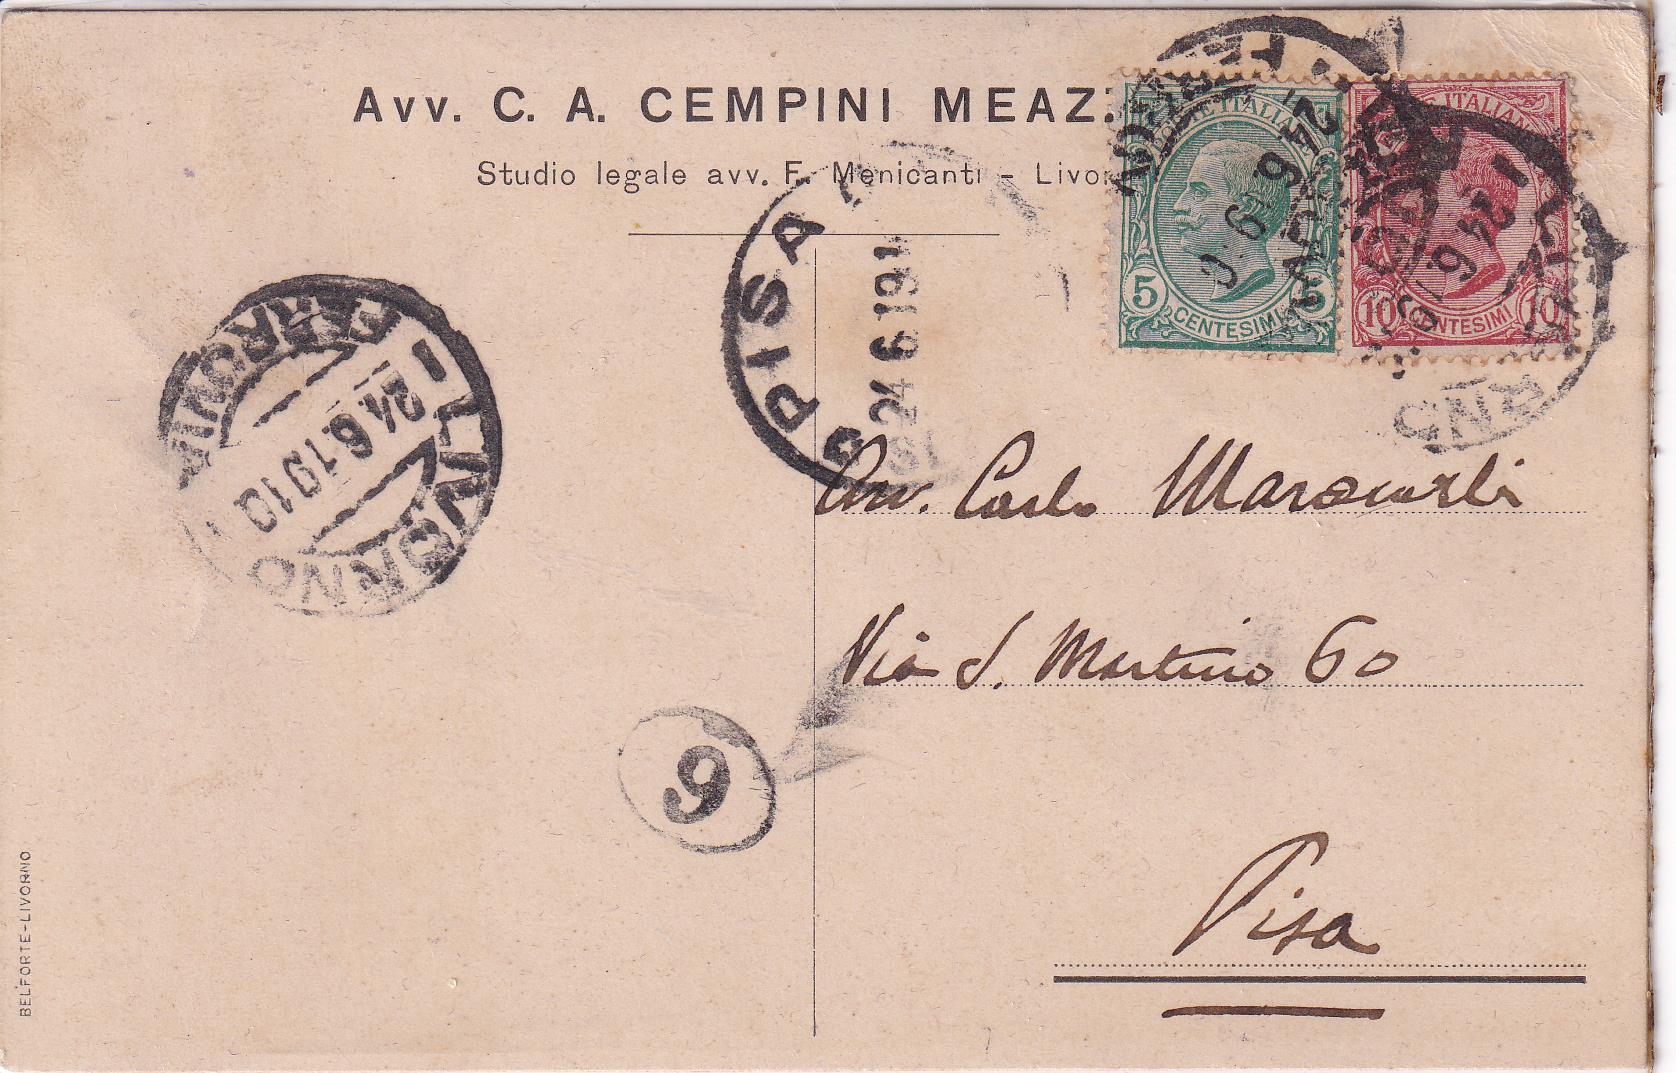 Avv. C. A. CEMPINI MEAZ
Studio legale avv. F. Menicanti - Livor
POSTE ITALIANE
5
CENTESIMI
5
POSTE ITALIANE
10
CENTESIMI
10
PISA
24 6 191
LIVORNO
FERROVIA
24.6.1910
Avv. Carlo
Via S. Martino 60
9
Pisa
BELFORTE-LIVORNO